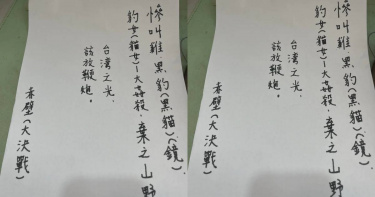 慘叫雞黑豹(黑貓)(鏡).
豹女(貓女)一大殺,棄之山野
台湾之光,
放鞭炮。
赤壁(大決戰)
慘叫雞黑豹(黑貓)(鏡).
豹女(貓女)一大殺,棄之山野
台湾之光,
放鞭炮。
赤壁(大決戰)